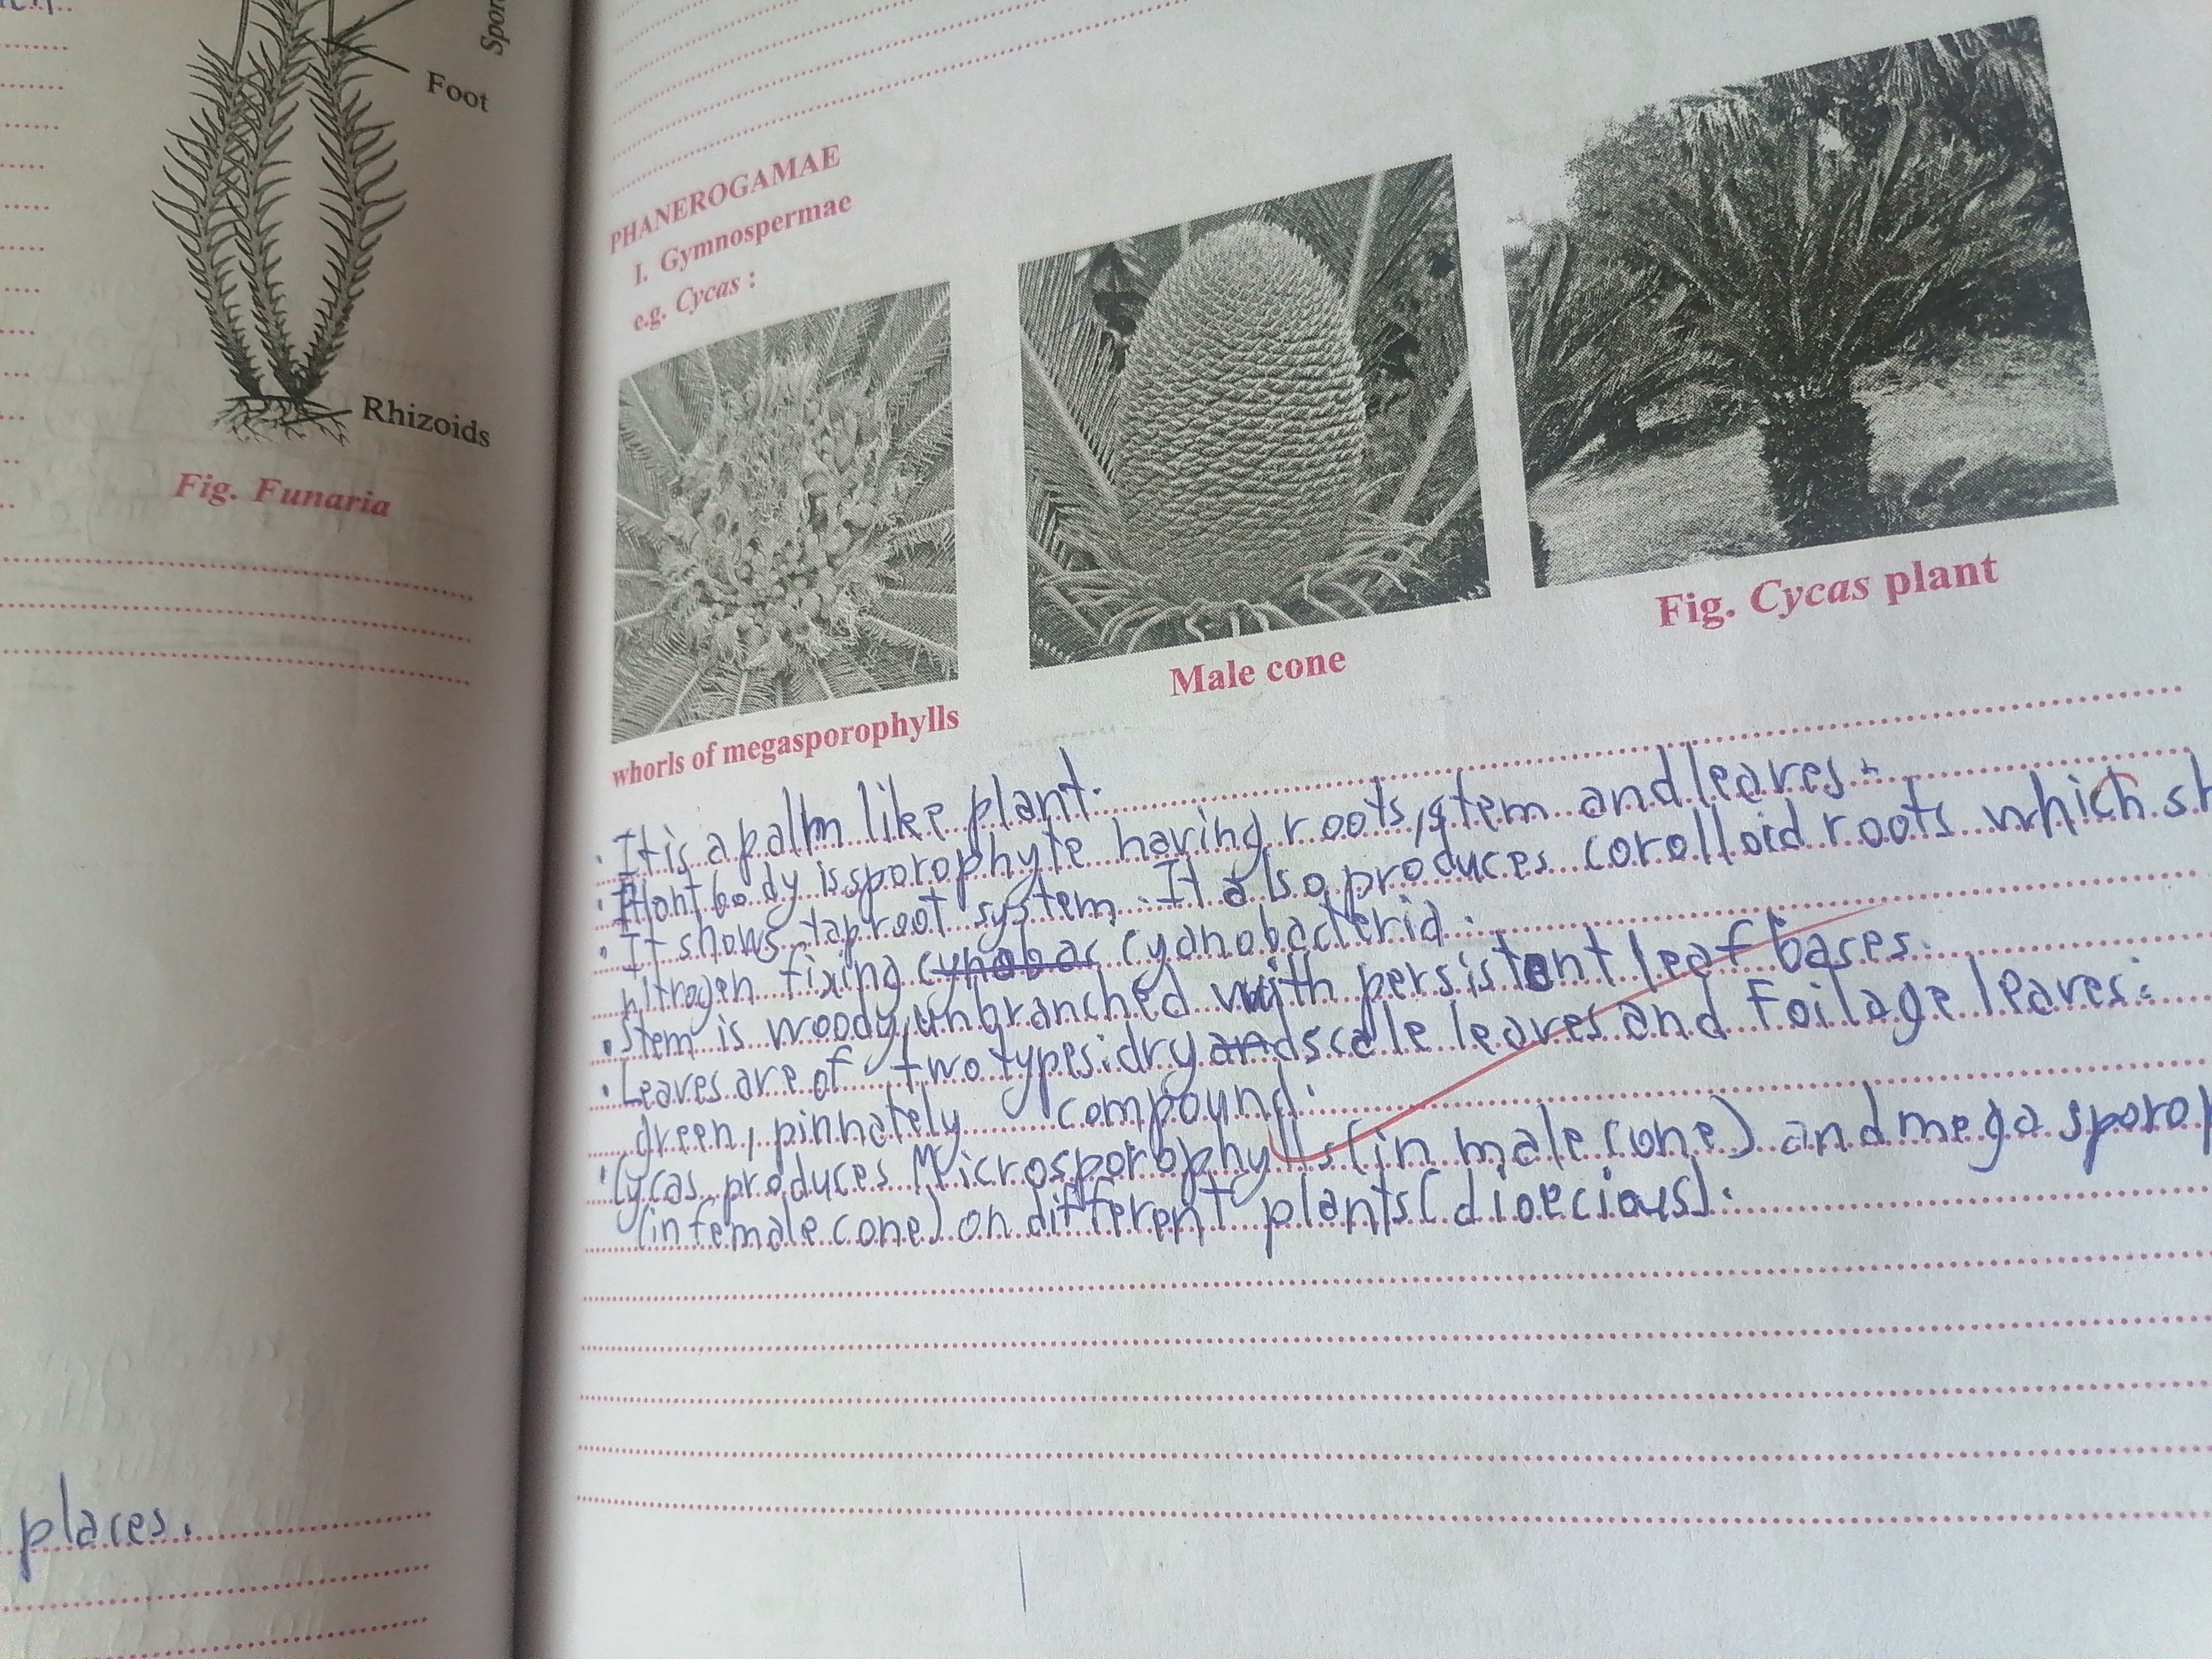 Foot
Rhizoids
Fig. Funaria
places.
PHANEROGAMAE
I. Gymnospermae
e.g. Cycas :
whorls of megasporophylls
Male cone
Fig. Cycas plant
• It is a palm like plant.
• Plant body is sporophyte having roots, stem and leaves.
• It shows tap root system. It also produces corolloid roots which
nitrogen fixing cynobac cyanobacteria.
• Stem is woody, unbranched with persistent leaf bases.
• Leaves are of two types: dry and scale leaves and Foilage leaves:
green, pinnately compound.
• Cycas produces Microsporophylls (in male cone) and mega
(in female cone) on different plants (dioecious).